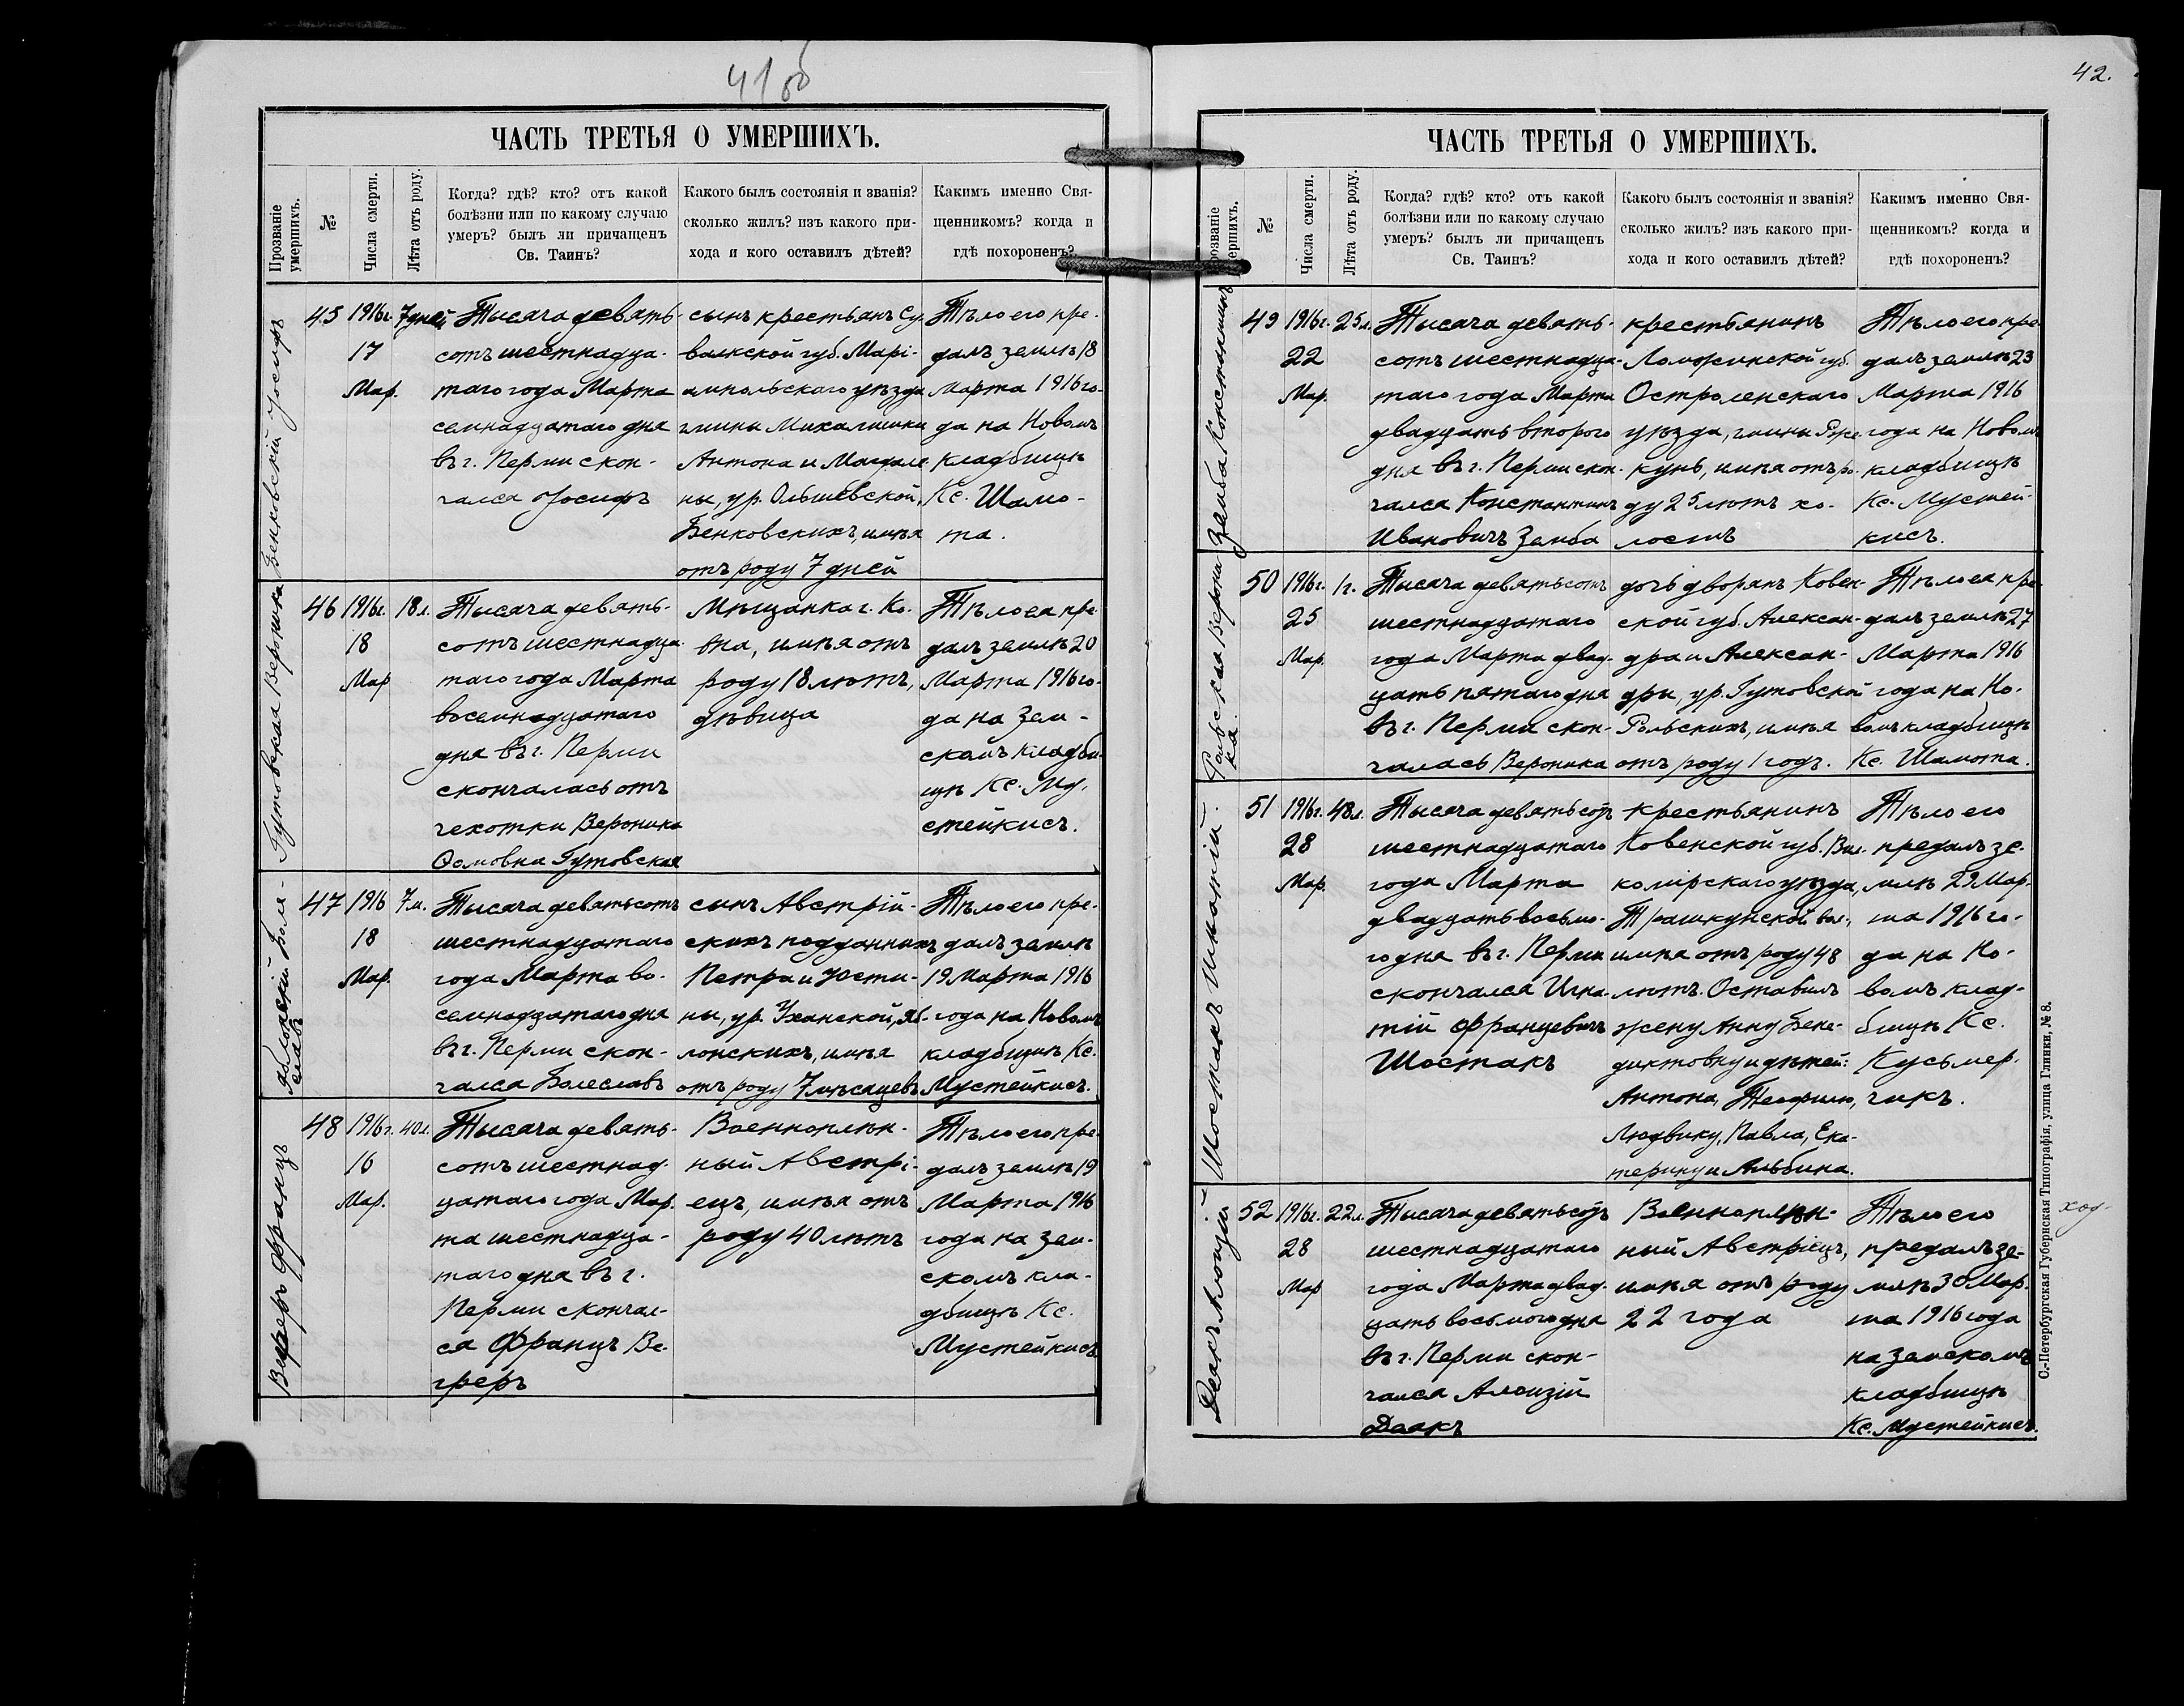 41об
ЧАСТЬ ТРЕТЬЯ О УМЕРШИХЪ.
Прозваніе умершихъ.
№
Числа смерти.
Лѣта отъ роду.
Когда? гдѣ? кто? отъ какой
болѣзни или по какому случаю
умеръ? былъ ли причащенъ
Св. Таинъ?
Какого былъ состоянія и званія?
сколько жилъ? изъ какого при-
хода и кого оставилъ дѣтей?
Какимъ именно Свя-
щенникомъ? когда и
гдѣ похороненъ?
Бенковскій Іосифъ
45
1916г.
17
Мар.
7 дней
Тысяча девять-
сотъ шестнадца-
таго года Марта
семнадцатаго дня
въ г. Перми скон-
чался Іосифъ
сынъ крестьянъ Су-
валкской губ. Марі-
ампольскаго уѣзда
гмины Михалишки
Антона и Магдале-
ны, ур. Ольшевской,
Бенковскихъ, имѣя
отъ роду 7 дней
Тѣло его пре-
далъ землѣ 18
Марта 1916 го-
да на Новомъ
кладбищѣ
Кс. Шамо-
та.
Гутовская Вероника
46
1916г.
18
Мар
18 л.
Тысяча девять-
сотъ шестнадца-
таго года Марта
восемнадцатаго
дня въ г. Перми
скончалась отъ
чехотки Вероника
Гутовская
Мѣщанка г. Ко-
вна, имѣя отъ
роду 18 лѣтъ,
дѣвица
Тѣло ея пре-
далъ землѣ 20
Марта 1916 го-
да на Зем-
скомъ кладби-
щѣ Кс. Му-
стейкисъ.
Яблонскій Боле-
славъ
47
1916
18
Мар.
7 м.
Тысяча девятьсотъ
шестнадцатаго
года Марта во-
семнадцатаго дня
въ г. Перми скон-
чался Болеславъ
сынъ Австрій-
скихъ подданныхъ
Петра и Юсти-
ны, ур. Уханской, Яб-
лонскихъ, имѣя
отъ роду 7 мѣсяцевъ
Тѣло его пре-
далъ землѣ
19 Марта 1916
года на Новомъ
кладбищѣ Кс.
Мустейкисъ.
Францъ
48
1916г.
16
Мар.
40 л.
Тысяча девять-
сотъ шестнад-
цатаго года Мар-
та шестнадца-
таго дня въ г.
Перми скончал-
ся Францъ Ве-
Военноплѣн-
ный Австрі-
ецъ, имѣя отъ
роду 40 лѣтъ
Тѣло его пре-
далъ землѣ 19
Марта 1916
года на зем-
скомъ кла-
дбищѣ Кс.
Мустейкисъ
42.
ЧАСТЬ ТРЕТЬЯ О УМЕРШИХЪ.
Прозваніе умершихъ.
№
Числа смерти.
Лѣта отъ роду.
Когда? гдѣ? кто? отъ какой
болѣзни или по какому случаю
умеръ? былъ ли причащенъ
Св. Таинъ?
Какого былъ состоянія и званія?
сколько жилъ? изъ какого при-
хода и кого оставилъ дѣтей?
Какимъ именно Свя-
щенникомъ? когда и
гдѣ похороненъ?
Земба Константинъ
49
1916г.
22
Мар.
25 л.
Тысяча девять-
сотъ шестнадца-
таго года Марта
двадцать второго
дня въ г. Перми скон-
чался Константинъ
Ивановичъ Земба
крестьянинъ
Ломжинской губ.
Остроленскаго
уѣзда, гмины Рже-
кунь, имѣя отъ ро-
ду 25 лѣтъ хо-
лостъ
Тѣло его пре-
далъ землѣ 23
Марта 1916
года на Новомъ
кладбищѣ
Кс. Мустей-
кисъ.
Рольская Верони-
ка.
50
1916г.
25
Мар.
1 г.
Тысяча девятьсотъ
шестнадцатаго
года Марта двад-
цать пятаго дня
въ г. Перми скон-
чалась Вероника
дочь дворянъ Ковен-
ской губ. Алексан-
дра и Алексан-
дры, ур. Гутовской
Рольскихъ, имѣя
отъ роду 1 годъ.
Тѣло ея пре-
далъ землѣ 27
Марта 1916
года на Но-
вомъ кладбищѣ
Кс. Шамота.
Шостакъ Игнатій.
51
1916г.
28
Мар.
48 л.
Тысяча девятьсотъ
шестнадцатаго
года Марта
двадцать восьмо-
го дня въ г. Перми
скончался Игна-
тій Францевичъ
Шостакъ
крестьянинъ
Ковенской губ. Вил-
комірскаго уѣзда,
Трашкунской вол.,
имѣя отъ роду 48
лѣтъ. Оставилъ
жену Анну Бене-
диктовну и дѣтей:
Антона, Теофилю,
Людвику, Павла, Ека-
терину и Альбина.
Тѣло его
предалъ зе-
млѣ 29 Мар-
та 1916 го-
да на Но-
вомъ клад-
бищѣ Кс.
Кусьмер-
чикъ.
Даакъ Алоизій
52
1916г.
28
Мар
22 л.
Тысяча девятьсотъ
шестнадцатаго
года Марта двад-
цать восьмого дня
въ г. Перми скон-
чался Алоизій
Даакъ
Военноплѣн-
ный Австріецъ,
имѣя отъ роду
22 года
Тѣло его
предалъ зе-
млѣ 30 Мар-
та 1916 года
на земскомъ
кладбищѣ
Кс. Мустейкисъ.
С.-Петербургская Губернская Типографія, улица Глинки, № 8.
ход-